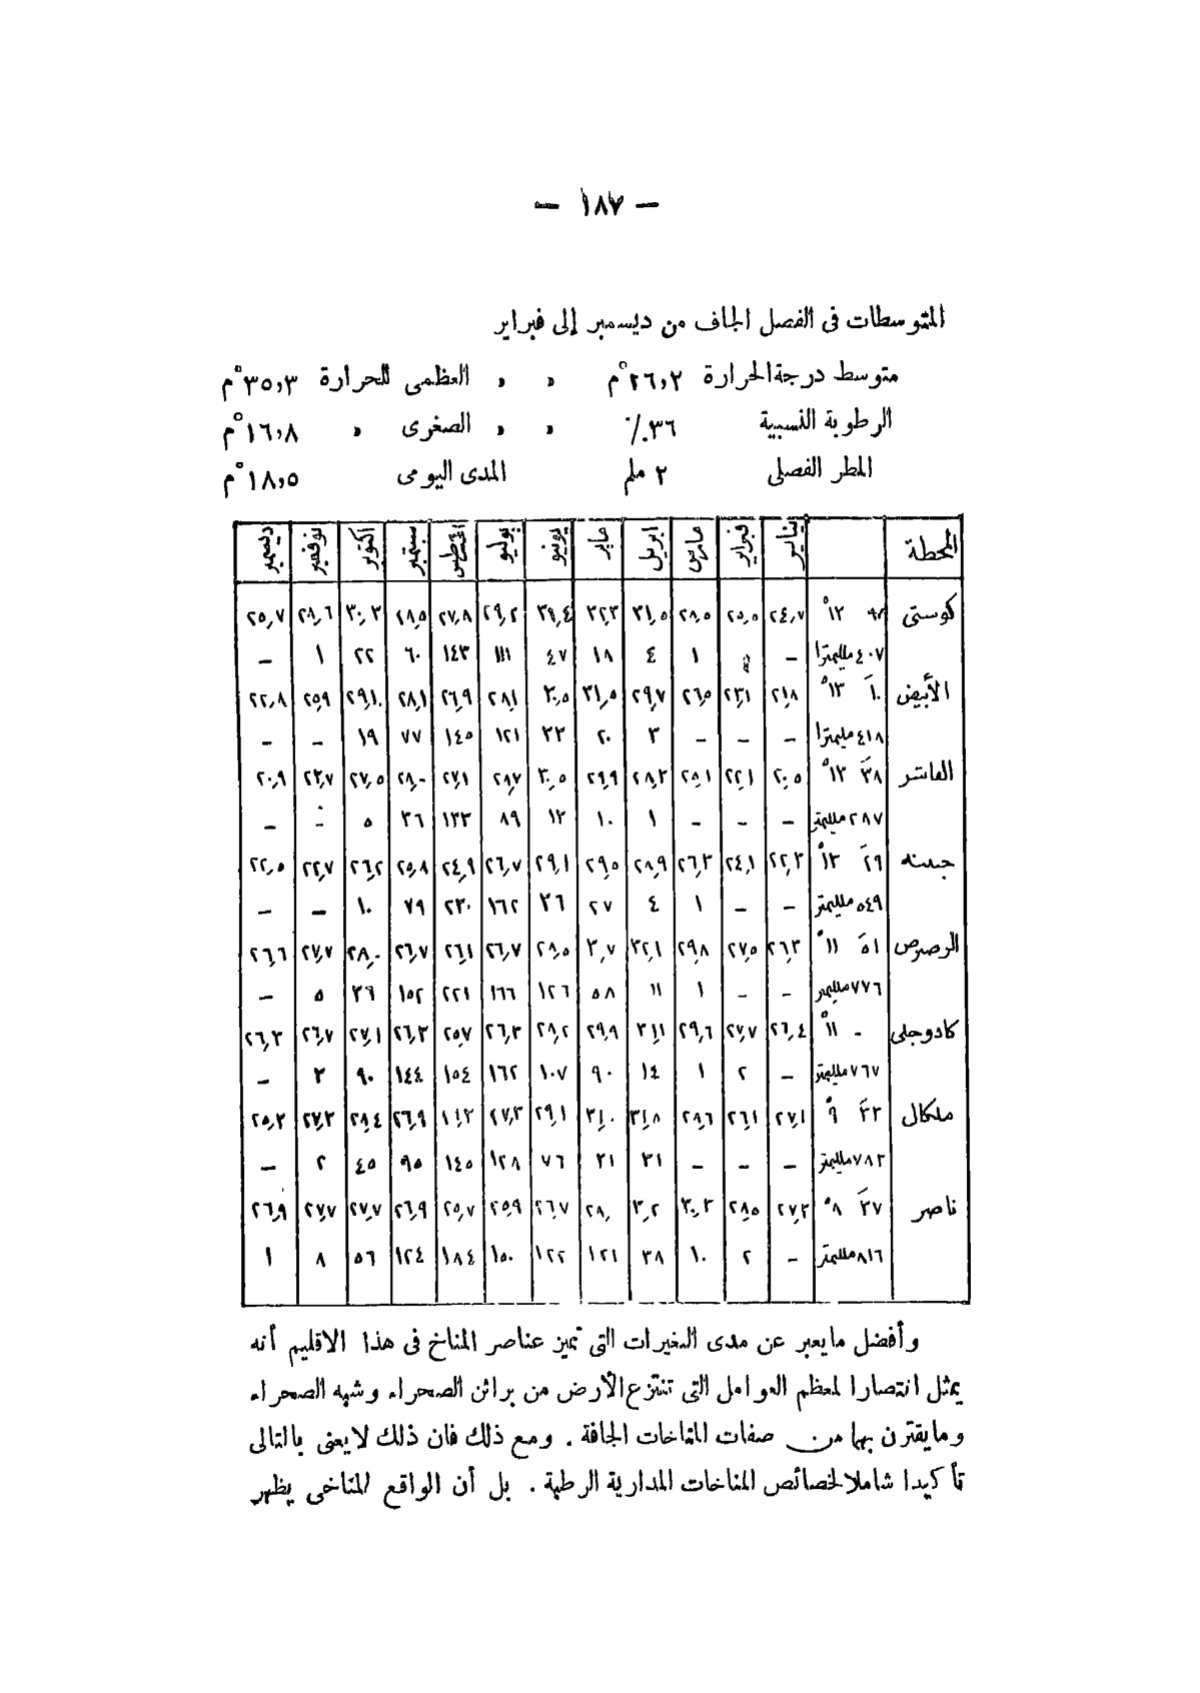 — ١٨٧ —
المتوسطات فى الفصل الجاف من ديسمبر إلى فبراير
متوسط درجة الحرارة ٢٦,٢°م » » العظمى للحرارة ٣٥,٣°م
الرطوبة النسبية ٣٦٪ » » الصغرى » ١٦,٨°م
المطر الفصلى ٢ ملم المدى اليومى ١٨,٥°م
المحطة يناير فبراير مارس ابريل مايو يونيو يوليو اغسطس سبتمبر اكتوبر نوفمبر ديسمبر
كوستى ١٣° ٢٤,٧ ٢٥,٥ ٢٨,٥ ٣١,٥ ٣٢,٣ ٢٩,٢ ٢٧,٨ ٢٨,٥ ٣٠,٣ ٢٨,٦ ٢٥,٧
٤٠٧ ملليمترا – ١ ٤ ١٨ ٤٧ ١١١ ١٤٣ ٦٠ ٢٢ ١ –
الأبيض ١٠ ١٣° ٢١,٨ ٢٣,١ ٢٦,٥ ٢٩,٧ ٣١,٥ ٣٠,٥ ٢٨,١ ٢٦,٩ ٢٨,١ ٢٩,١ ٢٥,٩ ٢٢,٨
٤١٨ مليمترا – – – ٣ ٢٠ ٣٣ ١٢١ ١٤٥ ٧٧ ١٩ – –
الفاشر ٣٨ ١٣° ٢٠,٥ ٢٢,١ ٢٥,١ ٢٨,٣ ٢٩,٩ ٣٠,٥ ٢٨,٧ ٢٧,١ ٢٨,٠ ٢٧,٥ ٢٣,٧ ٢٠,٩
٢٨٧ ملليمتر – – – ١ ١٠ ١٢ ٨٩ ١٣٣ ٣٦ ٥ – –
جنينه ٢٩ ١٣° ٢٢,٣ ٢٤,١ ٢٦,٣ ٢٨,٩ ٢٩,٥ ٢٩,١ ٢٦,٧ ٢٤,٩ ٢٥,٨ ٢٦,٢ ٢٢,٧ ٢٢,٥
٥٤٩ ملليمتر – – ١ ٤ ٢٧ ٣٦ ١٦٢ ٢٣٠ ٧٩ ١٠ – –
الرصيرص ٥١ ١١° ٢٦,٣ ٢٧,٥ ٢٩,٨ ٣٢,١ ٣٠,٧ ٢٨,٥ ٢٦,٧ ٢٦,١ ٢٦,٧ ٢٨,٠ ٢٧,٧ ٢٦,٦
٧٧٦ ملليمتر – – ١ ١١ ٥٨ ١٢٦ ١٦٦ ٢٢١ ١٥٢ ٣٦ ٥ –
كادوجلى – ١١° ٢٦,٤ ٢٧,٧ ٢٩,٦ ٣١,١ ٢٩,٩ ٢٨,٢ ٢٦,٣ ٢٥,٧ ٢٦,٣ ٢٧,١ ٢٦,٧ ٢٦,٣
٧٦٧ ملليمتر – ٢ ١ ١٤ ٩٠ ١٠٧ ١٦٢ ١٥٤ ١٤٤ ٩٠ ٣ –
ملكال ٣٣ ٩° ٢٧,١ ٢٦,١ ٢٨,٦ ٣١,٨ ٣١,٠ ٢٩,١ ٢٧,٣ ٢٦,٩ ٢٨,٤ ٢٧,٣ ٢٥,٣
٧٨٣ ملليمتر – – – ٣١ ٣١ ٧٦ ١٢٨ ١٤٥ ٩٥ ٤٥ ٢ –
ناصر ٣٧ ٨° ٢٧,٣ ٢٨,٥ ٣٠,٣ ٣٠,٢ ٢٨,٠ ٢٦,٧ ٢٥,٩ ٢٥,٧ ٢٦,٩ ٢٧,٧ ٢٧,٧ ٢٦,٩
٨١٦ ملليمتر – ٢ ١٠ ٣٨ ١٢١ ١٢٢ ١٥٠ ١٨٤ ١٢٤ ٥٦ ٨ ١
وأفضل مايعبر عن مدى التغيرات التى تميز عناصر المناخ فى هذا الاقليم أنه
يمثل انتصارا لمعظم العوامل التى تنتزع الأرض من براثن الصحراء وشبه الصحراء
ومايقترن بهما من صفات المناخات الجافة . ومع ذلك فان ذلك لايعنى بالتالى
تأكيدا شاملا لخصائص المناخات المدارية الرطبة . بل أن الواقع المناخى يظهر